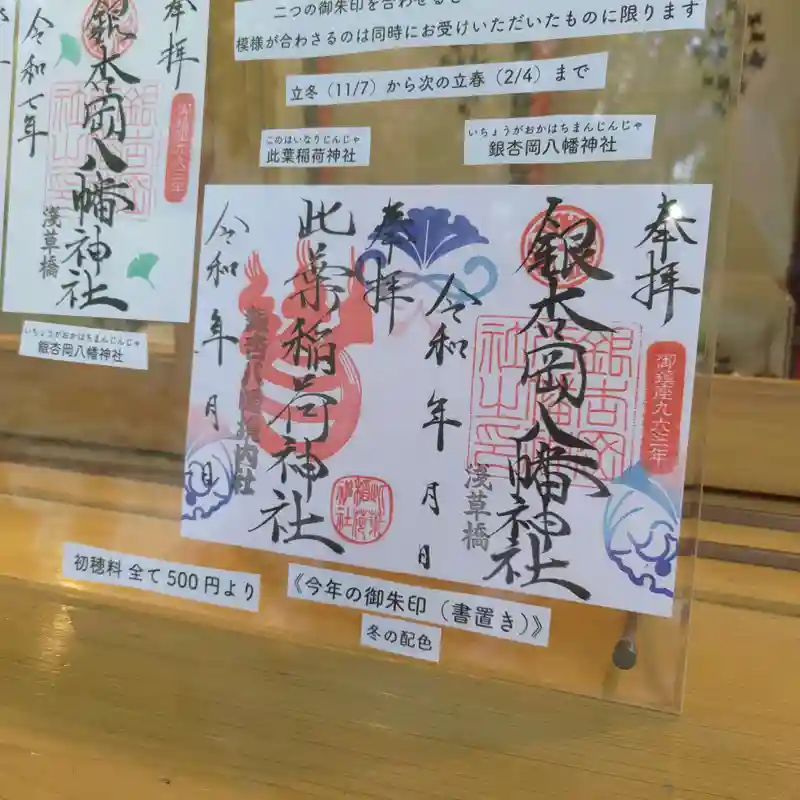 二つの御朱印を合わせると
模様が合わさるのは同時にお受けいただいたものに限ります
立冬（11/7）から次の立春（2/4）まで
このはいなりじんじゃ
此葉稲荷神社
いちょうがおかはちまんじんじゃ
銀杏岡八幡神社
奉拝
銀杏岡八幡神社
浅草橋
令和七年
御鎮座九六三年
いちょうがおかはちまんじんじゃ
銀杏岡八幡神社
奉拝
御鎮座九六三年
銀杏岡八幡神社
浅草橋
令和 年 月 日
奉拝
此葉稲荷神社
銀杏八幡境内社
令和 年 月 日
初穂料 全て500円より
《今年の御朱印（書置き）》
冬の配色